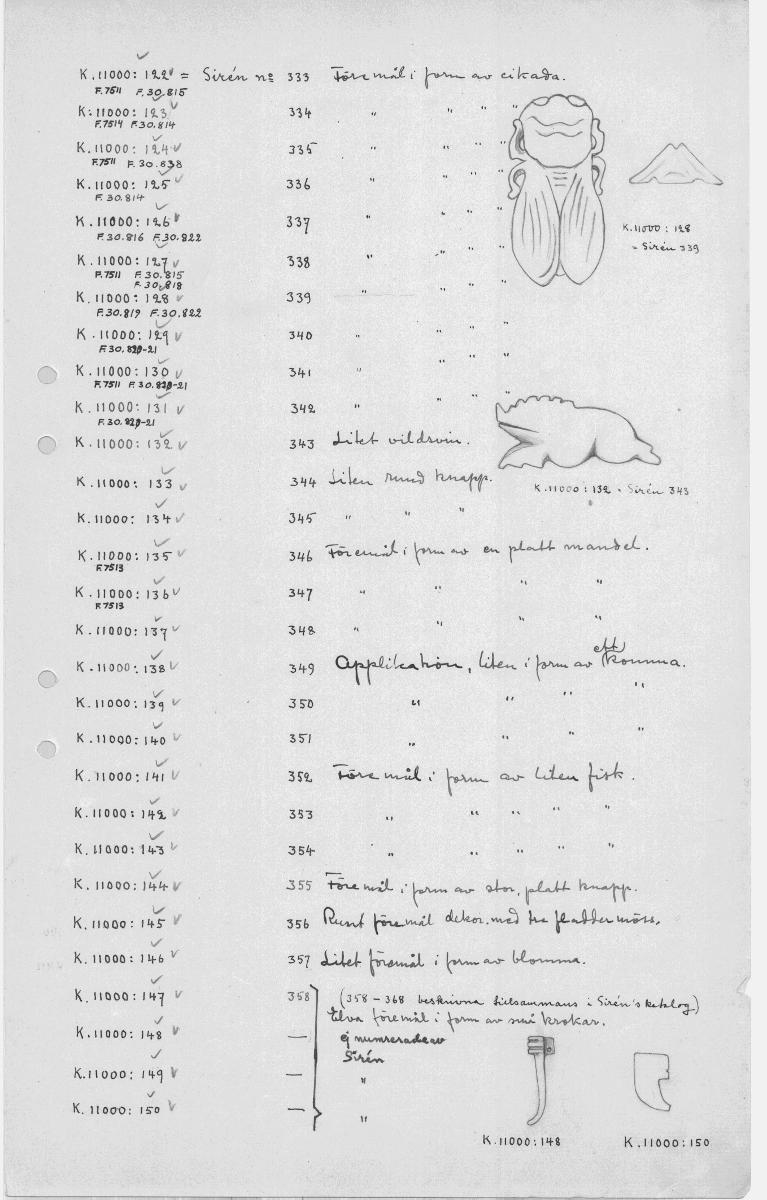 K.11000: 122 = Sirén nº 333 Föremål i form av cikada.
F.7511 F.30.815
K.11000: 123 334 " " " "
F.7514 F.30.814
K.11000: 124 335 " " " "
F.7511 F.30.838
K.11000: 125 336 " " " "
F.30.814
K.11000: 126 337 " " " "
F.30.816 F.30.822
K.11000 : 128
= Sirén 339
K.11000: 127 338 " " " "
F.7511 F.30.815
F.30.818
K.11000: 128 339 " " " "
F.30.819 F.30.822
K.11000: 129 340 " " " "
K.11000: 130 341 " " " "
K.11000: 131 342 " " " "
K.11000: 132 343 Litet vildsvin.
K.11000: 133 344 Liten rund knapp.
K.11000 : 132 = Sirén 343
K.11000: 134 345 " " "
K.11000: 135 346 Föremål i form av en platt mandel.
F.7513
K.11000: 136 347 " " " "
F.7513
K.11000: 137 348 " " " "
K.11000: 138 349 Applikation, liten i form av ett komma.
K.11000: 139 350 " " " "
K.11000: 140 351 " " " "
K.11000: 141 352 Föremål i form av liten fisk.
K.11000: 142 353 " " " " "
K.11000: 143 354 " " " " "
K.11000: 144 355 Föremål i form av stor, platt knapp.
K.11000: 145 356 Runt föremål dekor. med tre fladdermöss.
K.11000: 146 357 Litet föremål i form av blomma.
K.11000: 147 358 (358 – 368 beskrivna tillsammans i Sirén's katalog)
Elva föremål i form av små krokar.
K.11000: 148 — ej numrerade av
Sirén
K.11000: 149 — "
K.11000: 150 — "
K.11000:148 K.11000:150